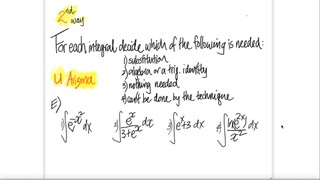 2nd
way
For each integral decide which of the following is needed:
1) substitution
2) algebra or a trig identity
3) nothing needed
4) can't be done by the technique
U Arizona
E)
1) ∫e^{-x^2} dx 2) ∫ e^x/(3+e^x) dx 3) ∫e^x+3 dx 4) ∫ ln(e^{2x})/x^2 dx